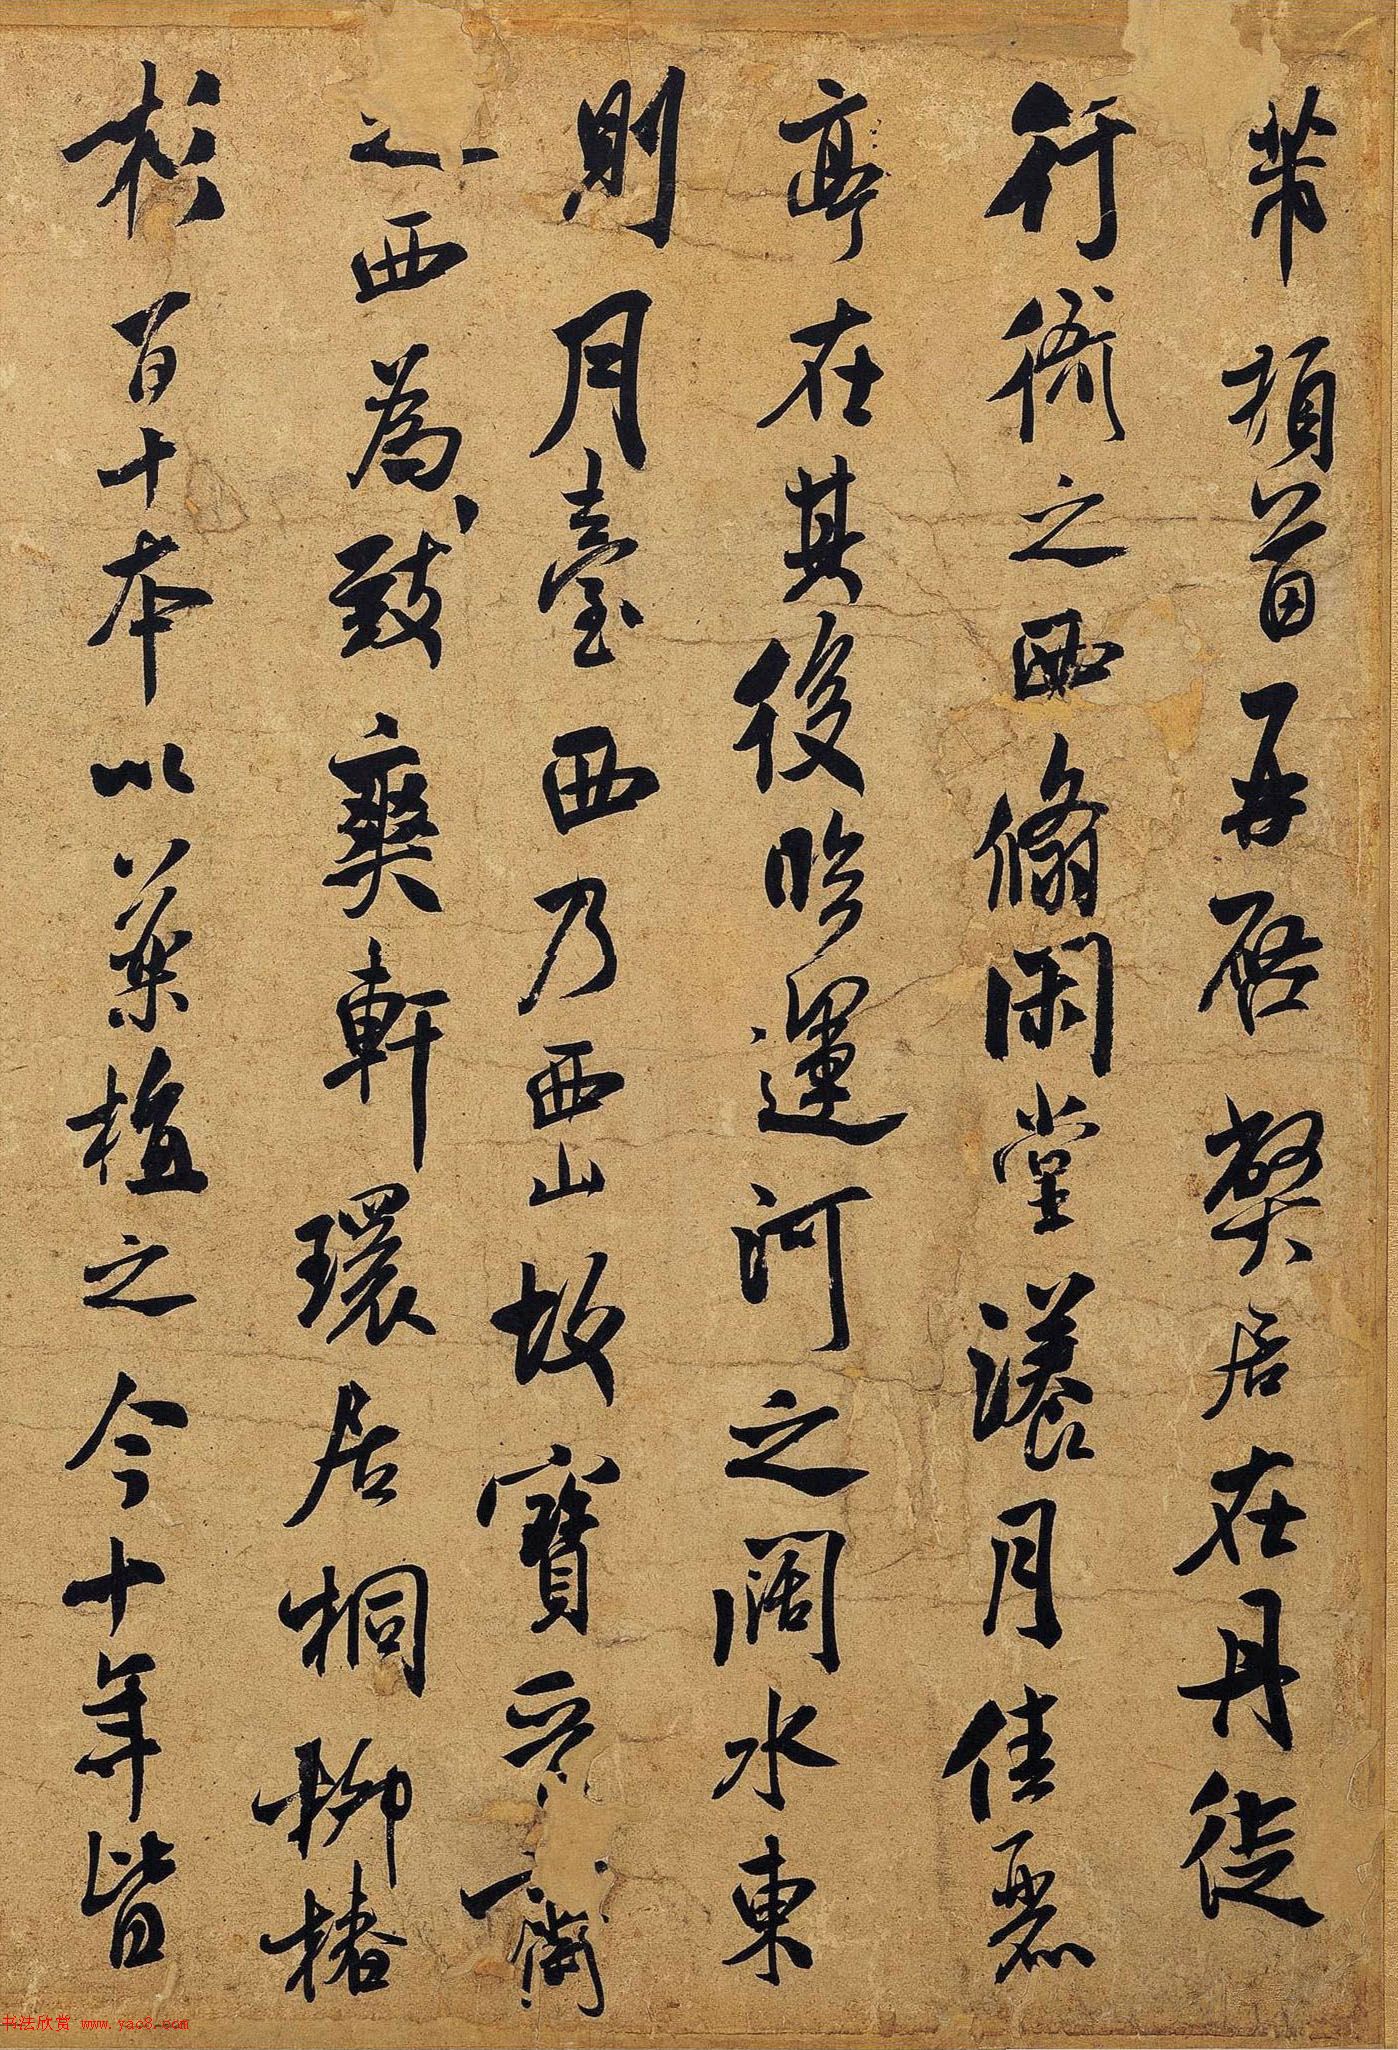 芾頓首再啓弊居在丹徒
行衙之西翛閑堂漾月佳麗
亭在其後臨運河之闊水東
則月臺西乃西山故寶晉齋
之西為致爽軒環居桐柳椿
杉百十本以葉植之今十年皆
书法欣赏 www.yac8.com